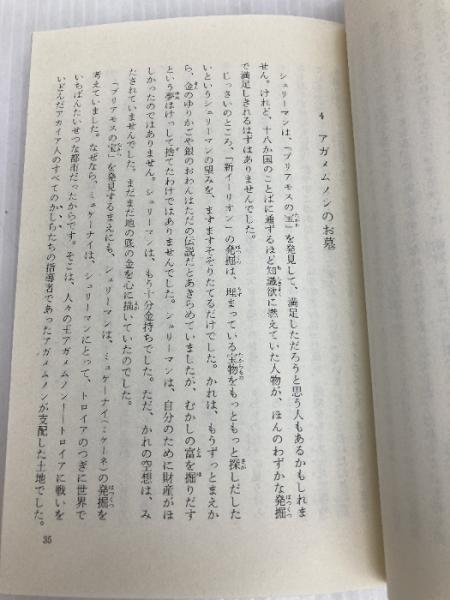 4 アガメムノンのお墓
シュリーマンは、「プリアモスの宝」を発見して、満足しただろうと思う人もあるかもしれま
せん。けれど、十八か国のことばに通ずるほど知識欲に燃えていた人物が、ほんのわずかな発掘
で満足しきれるはずはありませんでした。
じっさいのところ、「新イーリオン」の発掘は、埋まっている宝物をもっともっと探しだした
いというシュリーマンの望みを、ますますそそりたてるだけでした。かれは、もうずっとまえか
ら、金のゆりかごや銀のおわんはただの伝説だとあきらめていましたが、むかしの富を掘りだす
という夢はけっして捨てたわけではありませんでした。シュリーマンは、自分のために財産がほ
しかったのではありません。シュリーマンは、もう十分金持ちでした。ただ、かれの空想は、み
たされていませんでした。まだまだ地の底の金を心に描いていたのでした。
「プリアモスの宝」を発見するまえにも、シュリーマンは、ミュケーナイ(ミケーネ)の発掘を
考えていました。なぜなら、ミュケーナイは、シュリーマンにとって、トロイアのつぎに世界で
いちばんたいせつな都市だったからです。そこは、人々の王アガメムノン——トロイアに戦いを
いどんだアカイア人のすべてのかしらたちの指導者であったアガメムノンが支配した土地でした。
35